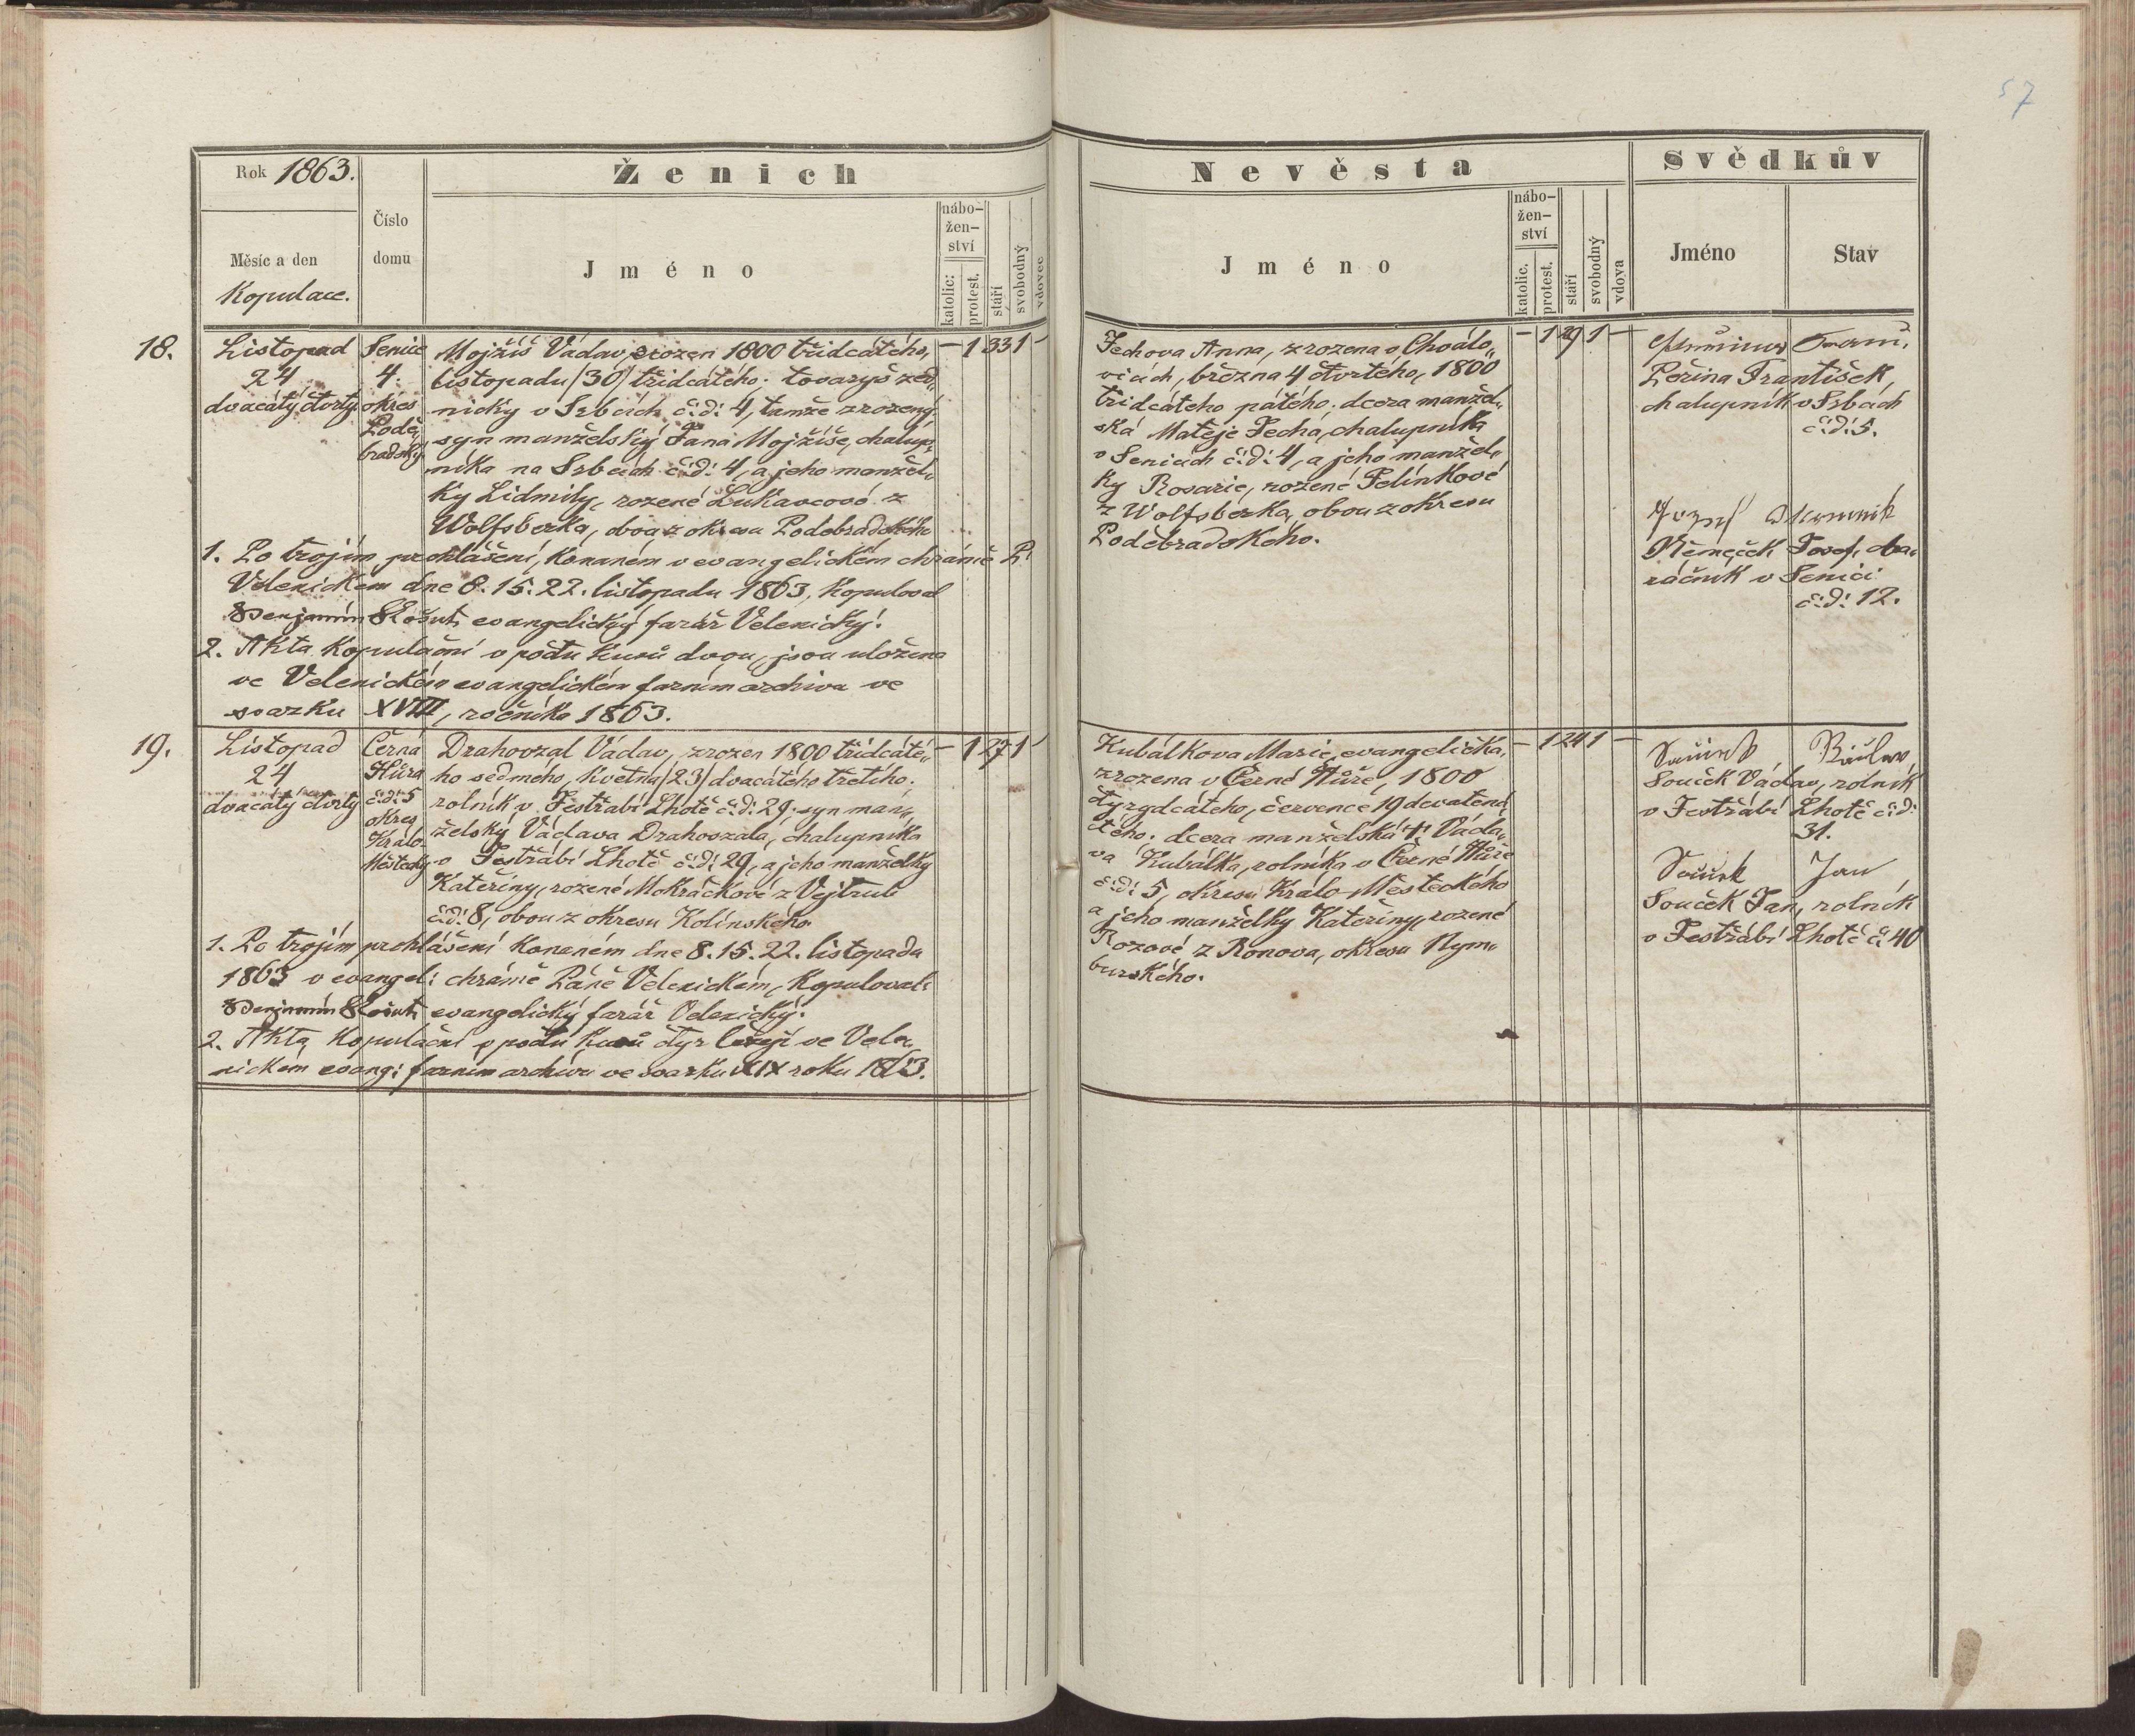 57
Rok 1863.
Měsíc a den
Kopulace.
Číslo
domu
Ženich
Jméno
nábo-
žen-
ství
katolic:
protest.
stáří
svobodný
vdovec
Nevěsta
Jméno
nábo-
žen-
ství
katolic.
protest.
stáří
svobodný
vdova
Svědkův
Jméno
Stav
18.
Listopad
24
dvacátý čtvrtý
Senice
4.
okres
Podě„
bradský
Mojžíš Václav, zrozen 1800 třidcátého,
listopadu /30/ třidcátého. tovaryš zed„
nický v Srbcích č:d: 4, tamže zrozený
syn manželský Jana Mojžíše, chalup„
níka na Srbcích č:d: 4, a jeho manžel„
ky Lidmily, rozené Lukavcové z
Wolfsberka, obou z okresu Poděbradského
– 1 33 1 –
1. Po trojím prohlášení, konaném v evangelickém chrámě P:
Velenickém dne 8. 15. 22. listopadu 1863, kopuloval
Benjamin Košut, evangelický farář Velenický.
2. Akta kopulační v počtu kusů dvou, jsou uložena
ve Velenickém evangelickém farním archivu ve
svazku XVIII, ročníka 1863.
Jechova Anna, zrozena v Chválo„
vicích, března 4 čtvrtého, 1800
třidcátého pátého. dcera manžel„
ská Matěje Jecha, chalupníka
v Senicích č:d: 4, a jeho manžel„
ky Rosarie, rozené Felínkové
z Wolfsberka, obou z okresu
Poděbradského.
– 1 29 1 –
Peřina František,
chalupník v Srbcích
č:d: 5.
Josef
Němeček Josef, ba„
ráčník v Senici
č:d: 12.
19.
Listopad
24
dvacátý čtvrtý
Černá
Hůra
č:d: 5
okres
Králo
Městecký
Drahovzal Václav, zrozen 1800 třidcáté„
ho sedmého, května /23/ dvacátého třetího.
rolník v Jestřabí Lhotě č:d: 29, syn man„
želský Václava Drahovzala, chalupníka
v Jestřábí Lhotě č:d: 29, a jeho manželky
Kateřiny, rozené Mokráčkové z Vejtrub
č:d: 8, obou z okresu Kolínského
– 1 27 1 –
1. Po trojím prohlášení konaném dne 8. 15. 22. listopadu
1863 v evangel: chrámě Páně Velenickém, kopuloval:
Benjamin Košut, evangelický farář Velenický.
2. Akta kopulační v počtu kusů čtyr leží ve Vele„
nickém evang: farním archivu ve svazku XIX roku 1863.
Kubálkova Marie, evangelička,
zrozena v Černé Hůře, 1800
čtyrydcátého, července 19 devatená„
ctého. dcera manželská †: Václa„
va Kubálka, rolníka v Černé Hůře
č:d: 5, okresu Králo-Městeckého
a jeho manželky Kateřiny, rozené
Rozové z Ronova, okresu Nym„
burského.
– 1 24 1 –
Souček Václav, rolník
v Jestřábí Lhotě č:d:
31.
Jan
Souček Jan, rolník
v Jestřábí Lhotě č: 40